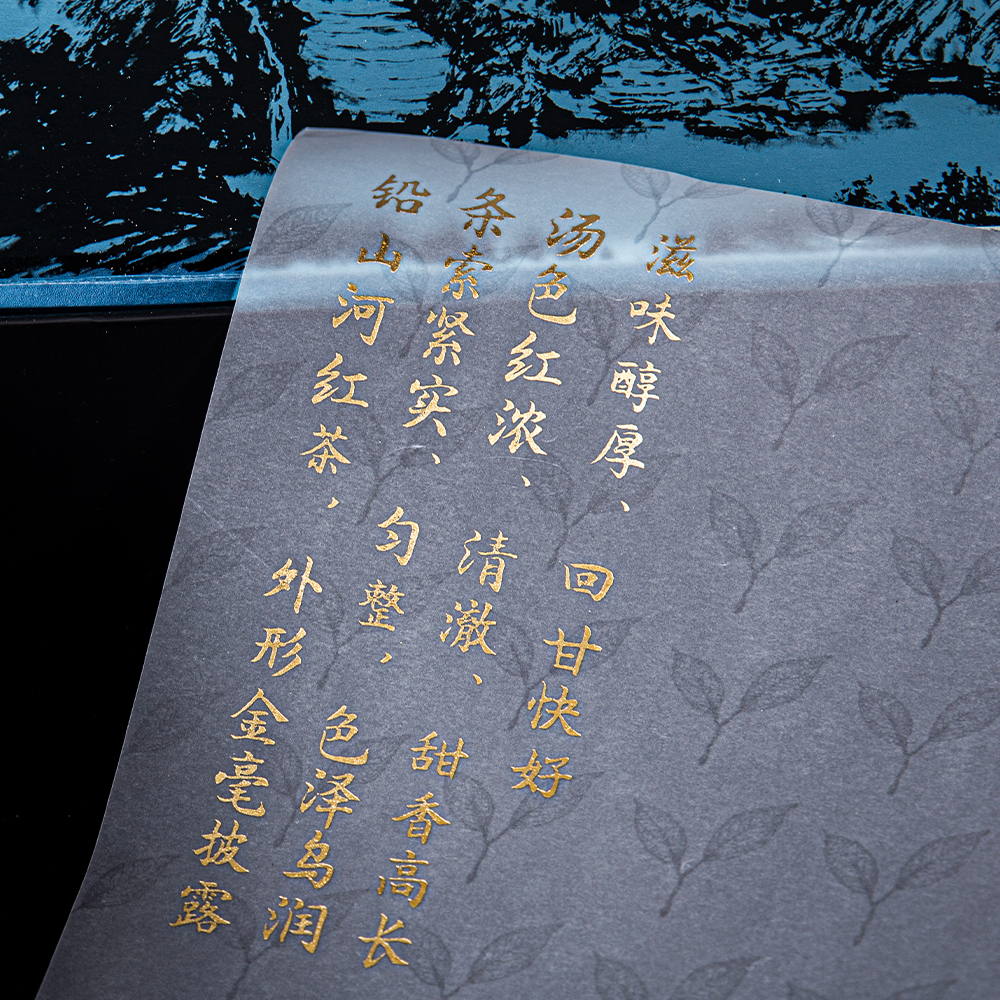 铅山河红茶，外形金毫披露
条索紧实、匀整，色泽乌润
汤色红浓、清澈、甜香高长
滋味醇厚、回甘快好